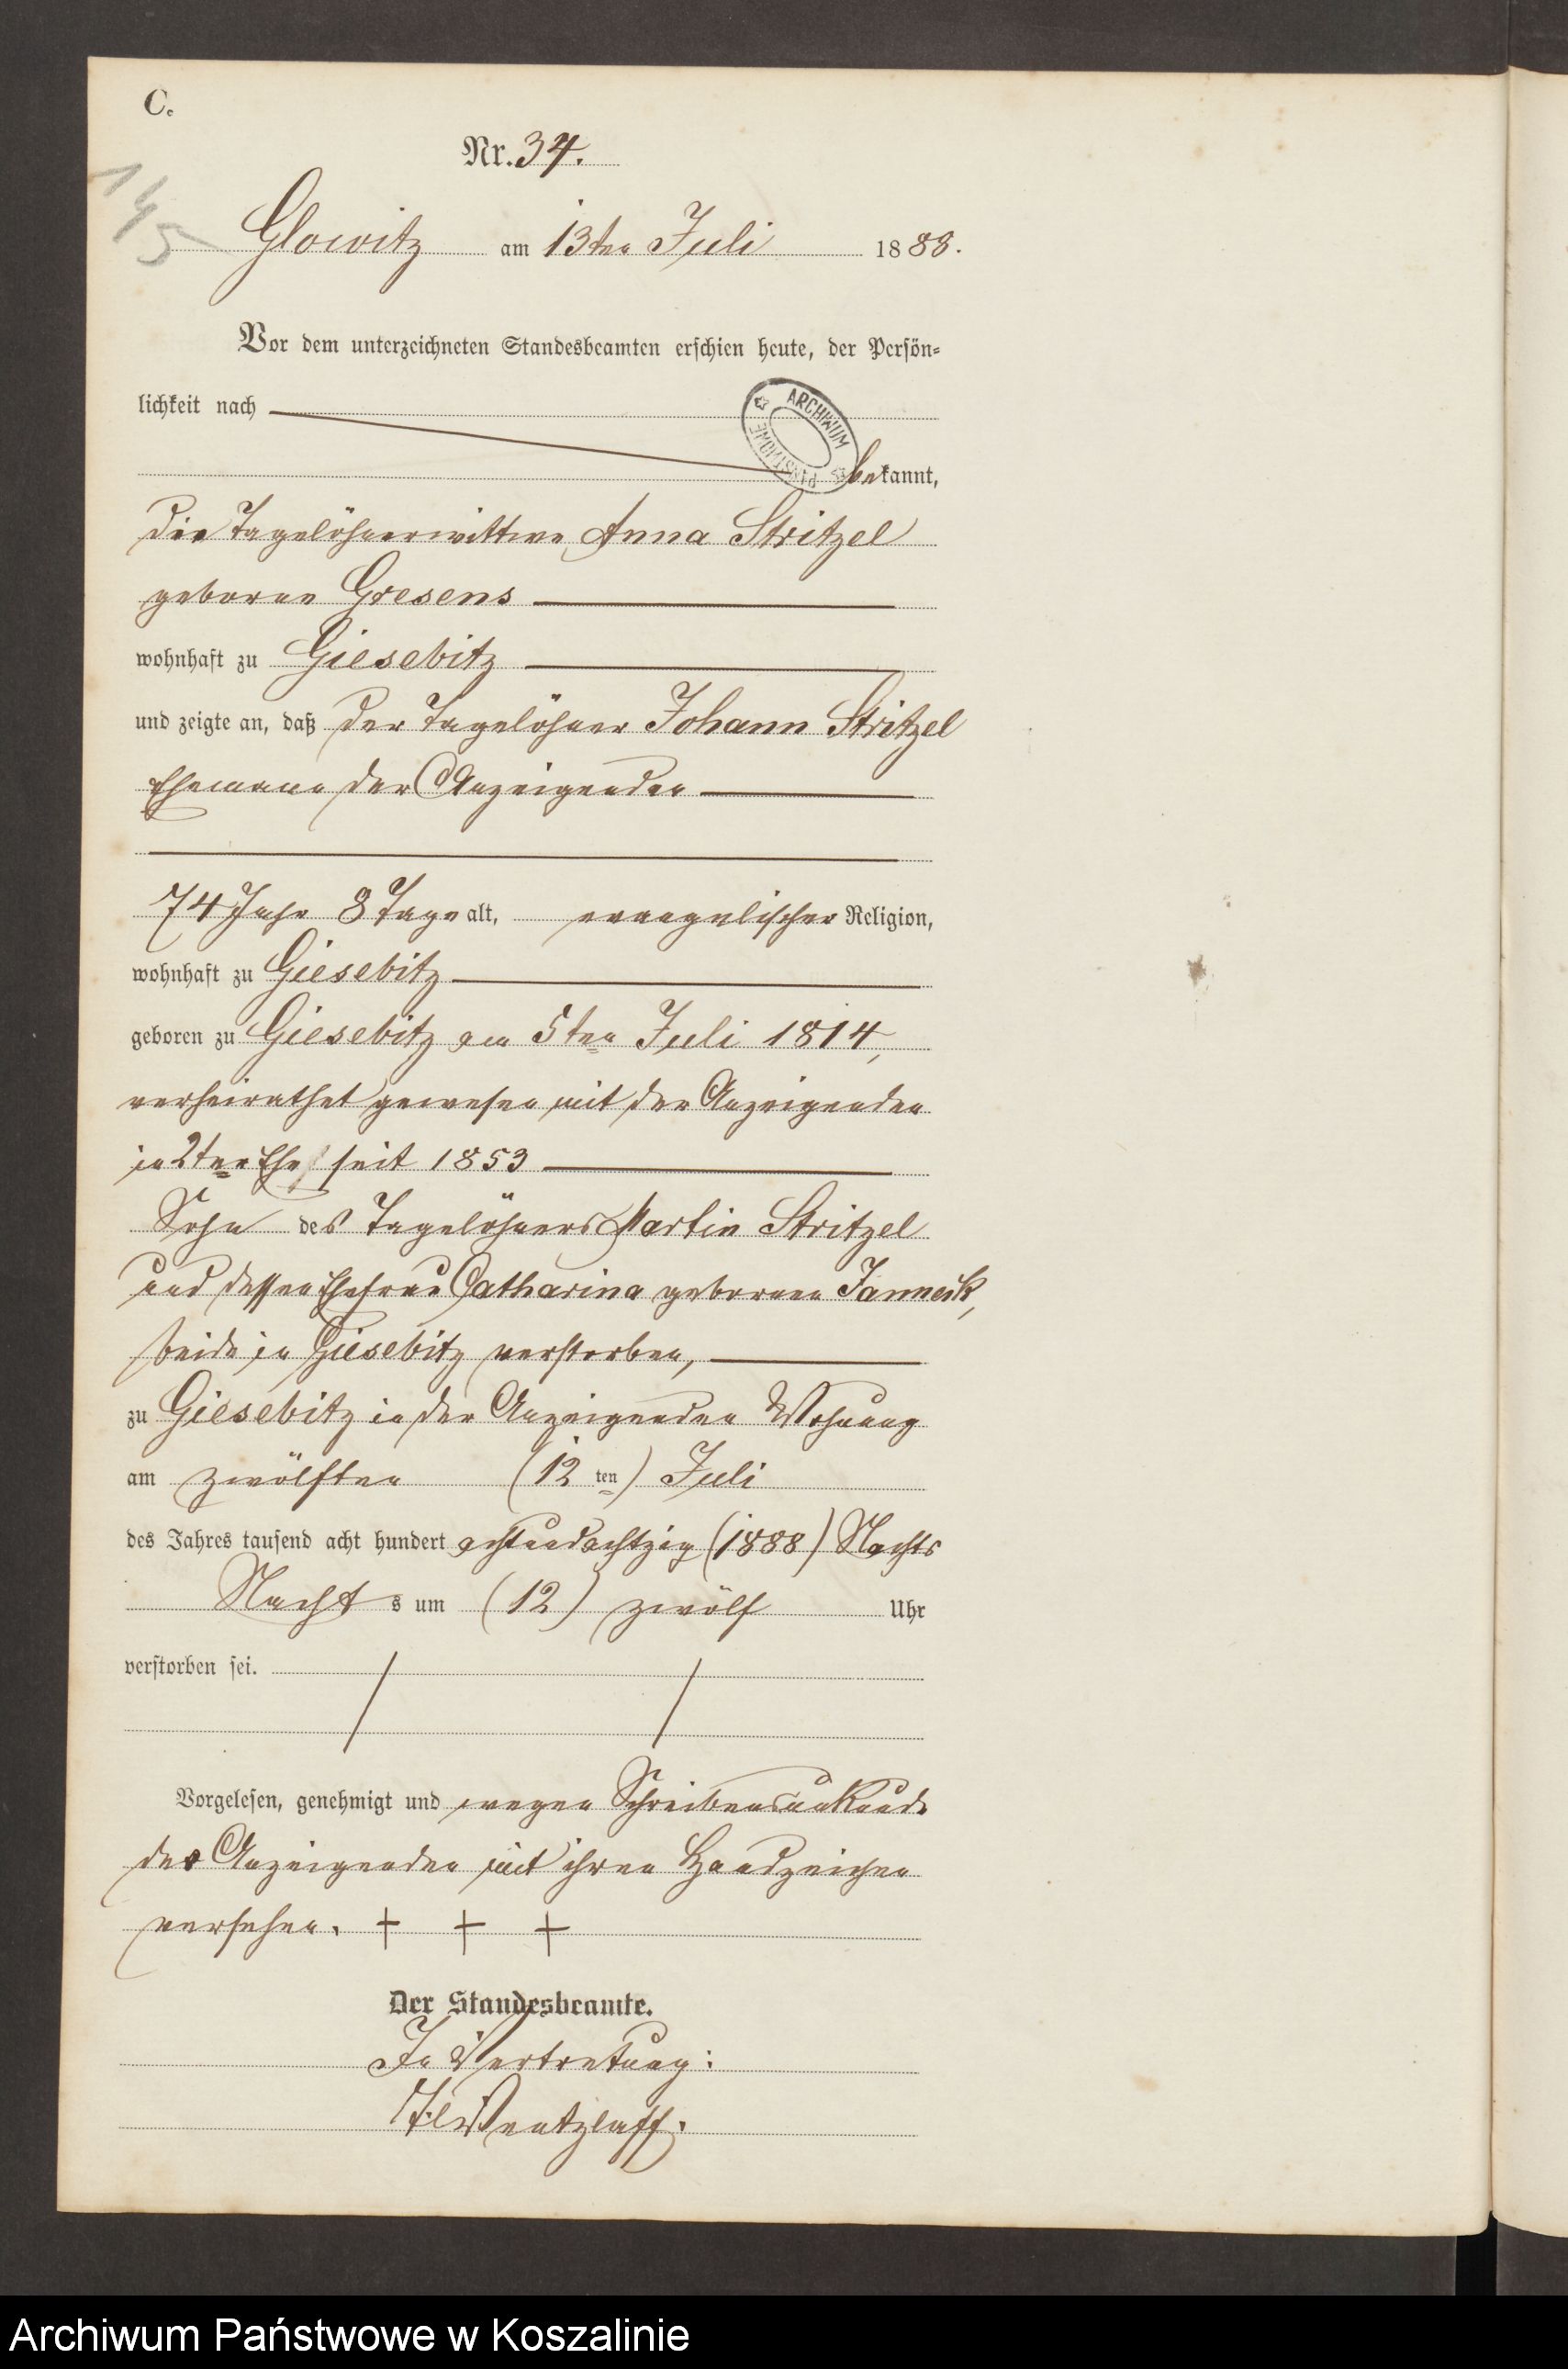 C.
Nr. 34.
1/5
Glowitz am 13ten Juli 1888.
Vor dem unterzeichneten Standesbeamten erschien heute, der Persön-
lichkeit nach
ARCHIWUM PAŃSTWOWE
bekannt,
die Tagelöhnerwittwe Anna Stritzel
geborne Gresens
wohnhaft zu Giesebitz
und zeigte an, daß der Tagelöhner Johann Stritzel
Ehemann der Anzeigenden
74 Jahr 8 Tage alt, evangelischer Religion,
wohnhaft zu Giesebitz
geboren zu Giesebitz am 5ten Juli 1814,
verheirathet gewesen mit der Anzeigenden
in 2ter Ehe seit 1853
Sohn des Tagelöhners Martin Stritzel
und dessen Ehefrau Catharina gebornen Janneck,
beide in Giesebitz verstorben,
zu Giesebitz in der Anzeigenden Wohnung
am zwölften (12 ten) Juli
des Jahres tausend acht hundert achtundachtzig (1888) Nachts
Nacht s um (12) zwölf Uhr
verstorben sei.
Vorgelesen, genehmigt und wegen Schreibensunkunde
der Anzeigenden mit ihren Handzeichen
versehen. + + +
Der Standesbeamte.
In Vertretung:
Wentzlaff.
Archiwum Państwowe w Koszalinie